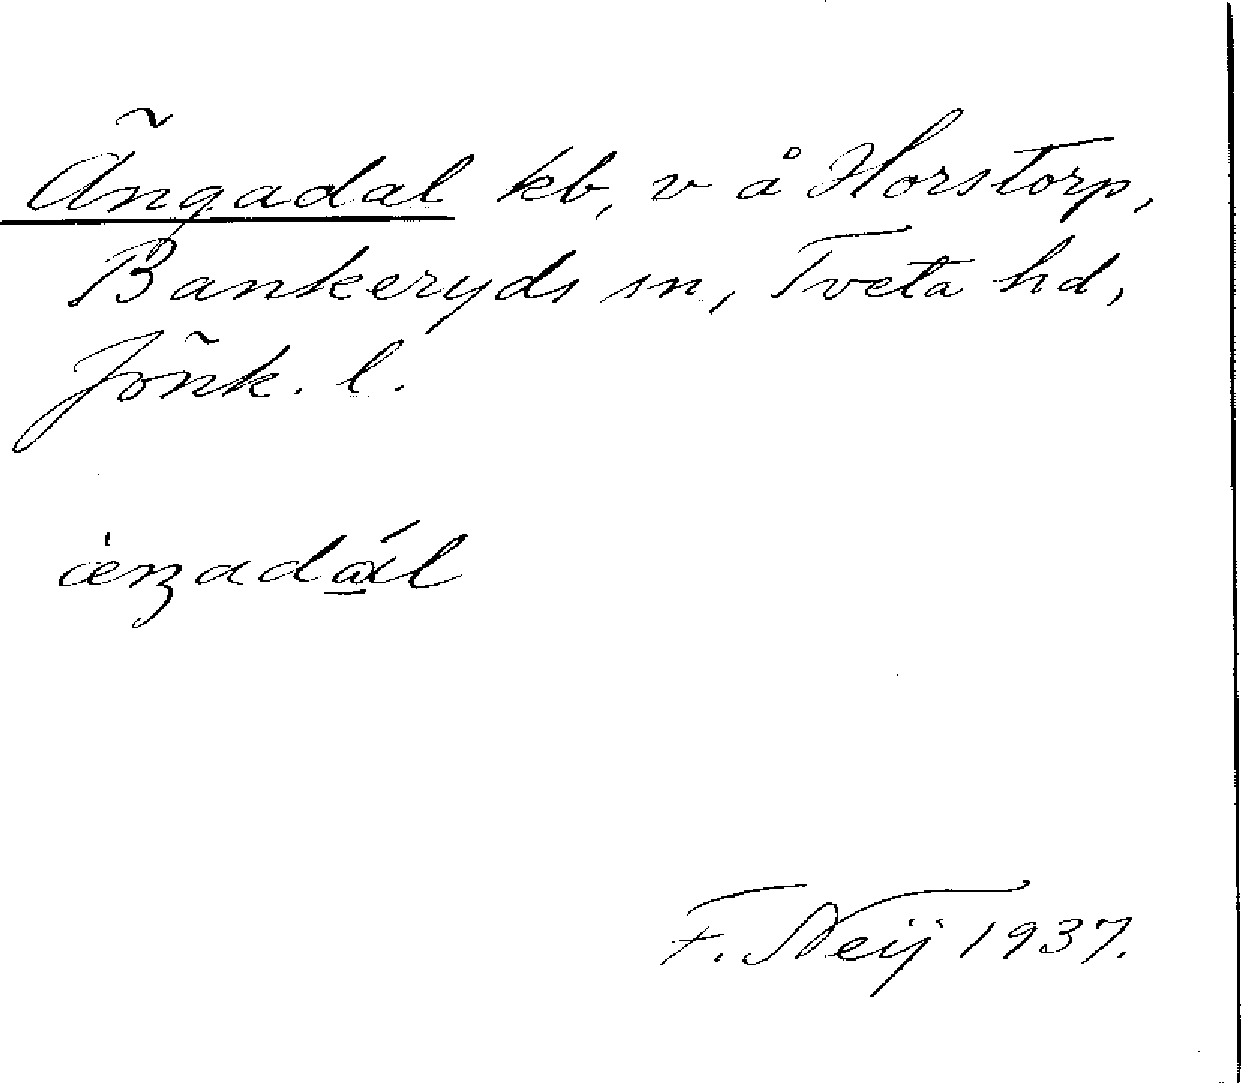 Ängadal kb, v å Horstorp,
Bankeryds sn, Tveta hd,
Jönk. l.
æ̀ŋadά̲l
F. Neij 1937.